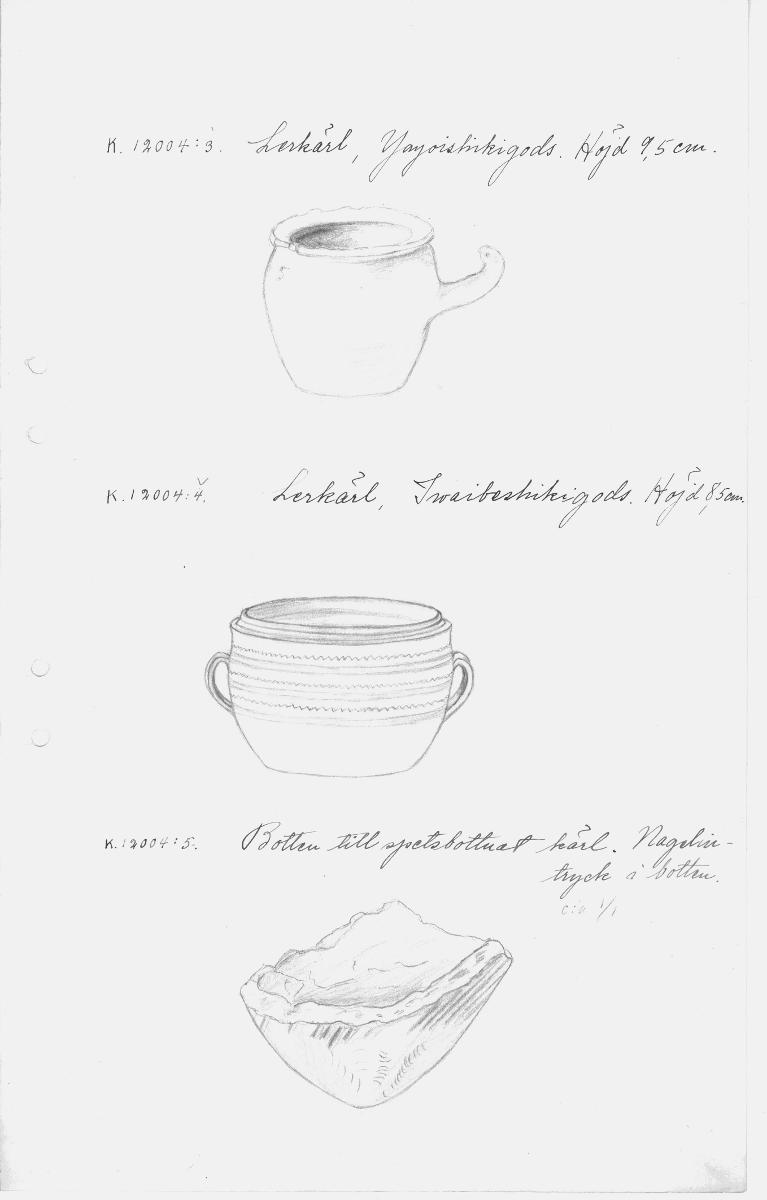 K. 12004:3. Lerkärl, Yayoishikigods. Höjd 9,5 cm.
K. 12004:4. Lerkärl, Iwaibeshikigods. Höjd 8,5 cm.
K. 12004:5. Botten till spetsbottnat kärl. Nagelin-
tryck å botten.
c:a 1/1